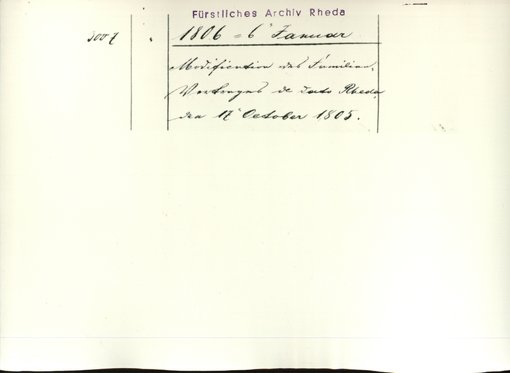 Fürstliches Archiv Rheda
1806 = 6 Januar
Modification des Familien-
Vertrages de dato Rheda
den 17 October 1805.